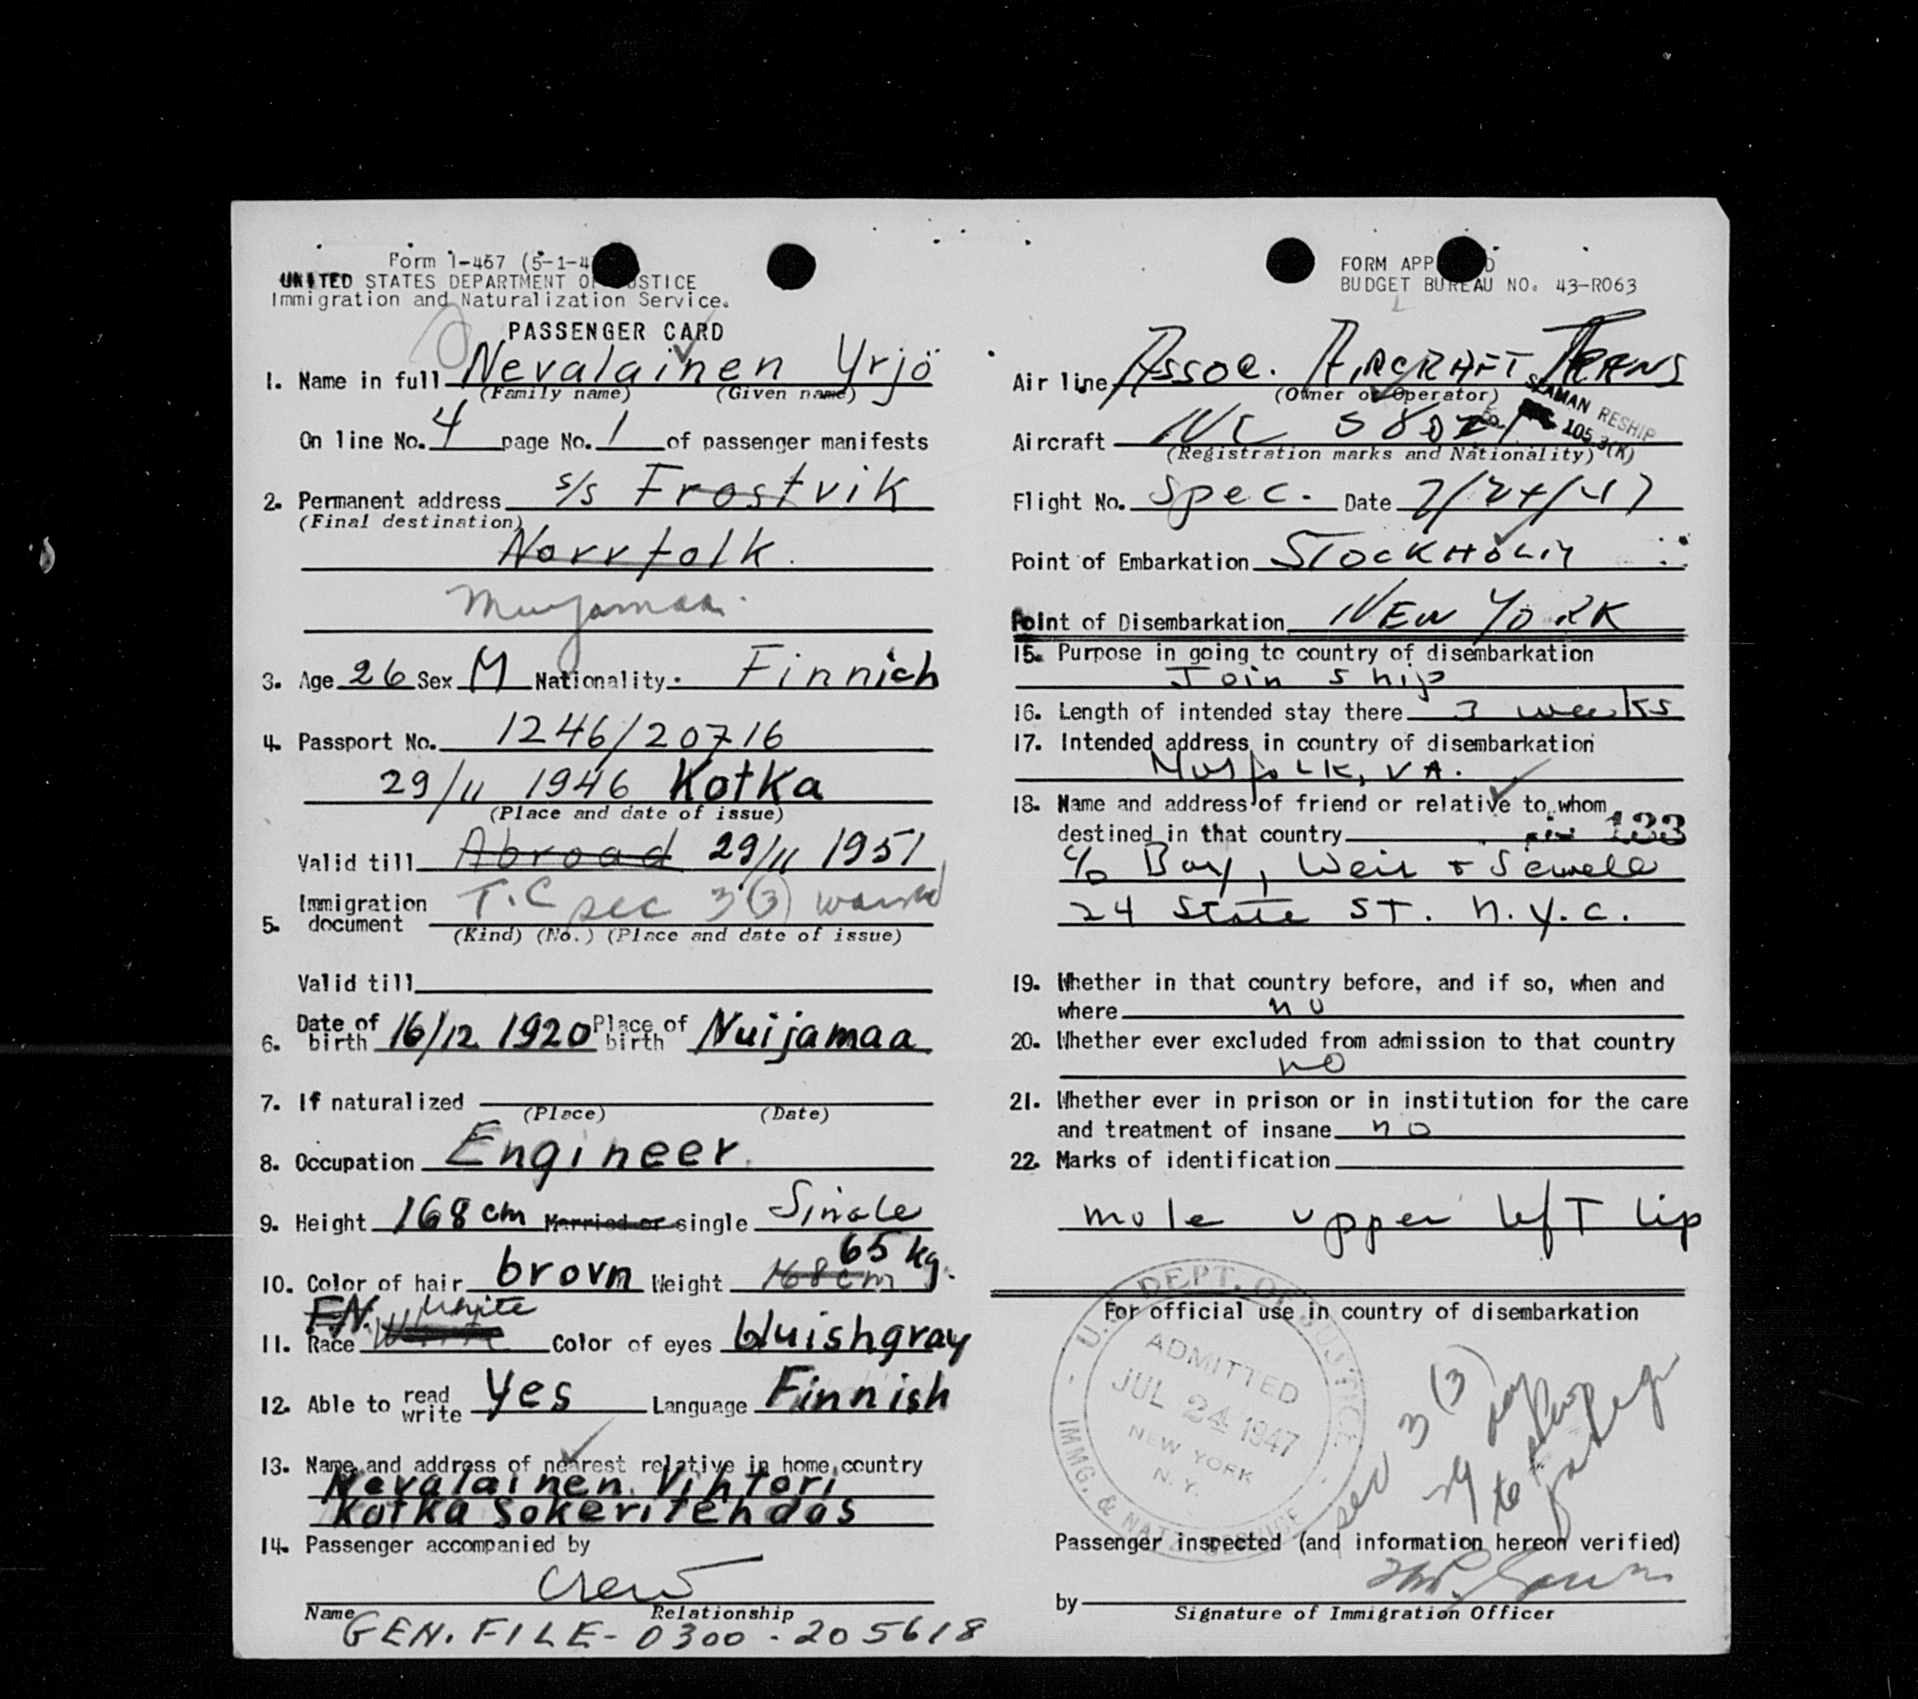 Form I-467 (5-1-4
UNITED STATES DEPARTMENT OF JUSTICE
Immigration and Naturalization Service.
PASSENGER CARD
1. Name in full Nevalainen Yrjö
(Family name) (Given name)
On line No. 4 page No. 1 of passenger manifests
2. Permanent address s/s Frostvik
(Final destination)
Norrfolk
3. Age 26 Sex M Nationality Finnich
4. Passport No. 1246/20716
29/11 1946 Kotka
(Place and date of issue)
Valid till Abroad 29/11 1951
5. Immigration document T.C sec 3(3) waived
(Kind) (No.) (Place and date of issue)
Valid till
6. Date of birth 16/12 1920 Place of birth Nuijamaa
7. If naturalized
(Place) (Date)
8. Occupation Engineer
9. Height 168 cm Married or single Single
65 kg.
10. Color of hair brovn Weight 168 cm
FN. White
11. Race White Color of eyes bluishgray
12. Able to read write Yes Language Finnish
13. Name and address of nearest relative in home country
Nevalainen Vihtori
Kotka Sokeritehdas
14. Passenger accompanied by
Crew
Name Relationship
GEN. FILE - 0300 - 205618
FORM APP D
BUDGET BUREAU NO. 43-R063
Air line Assoc. Aircraft
(Owner or Operator)
SEAMAN RESHIP
105.3(K)
Aircraft NC
(Registration marks and Nationality)
Flight No. Spec. Date 7/24/47
Point of Embarkation STOCKHOLM
Point of Disembarkation NEW YORK
15. Purpose in going to country of disembarkation
Join ship
16. Length of intended stay there 3 weeks
17. Intended address in country of disembarkation
Norfolk, VA.
18. Name and address of friend or relative to whom
destined in that country 133
c/o Boy, Weir + Sewell
24 State ST. N.Y.C.
19. Whether in that country before, and if so, when and
where no
20. Whether ever excluded from admission to that country
no
21. Whether ever in prison or in institution for the care
and treatment of insane no
22. Marks of identification
mole upper left lip
For official use in country of disembarkation
U.S. DEPT. OF JUSTICE
ADMITTED
JUL 24 1947
NEW YORK
N.Y.
IMMG. & NAT'Z SERVICE
sec 3 (3)
Passenger inspected (and information hereon verified)
by
Signature of Immigration Officer